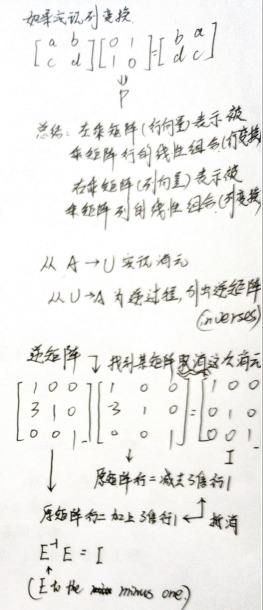 如果实现列变换
[a b
c d] [0 1
1 0] = [b a
d c]
⇓
P
总结: 左乘矩阵(行向量)表示被
乘矩阵行的线性组合(行变换)
右乘矩阵(列向量)表示被
乘矩阵列的线性组合(列变换)
从 A → U 实现消元
从 U → A 为逆过程, 引出逆矩阵
(inverses)
逆矩阵 找到某矩阵取消这次消元
[1 0 0
3 1 0
0 0 1] [1 0 0
-3 1 0
0 0 1] = [1 0 0
0 1 0
0 0 1]
I
原矩阵行二减去3倍行1
原矩阵行二加上3倍行1 抵消
E⁻¹ E = I
(E to the minus one.)